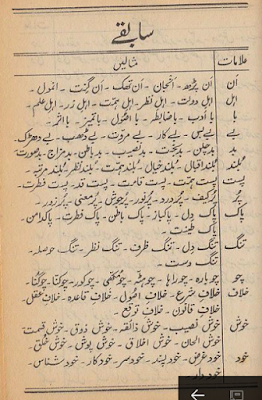 سابقے
علامات مثالیں
اَن اَن پڑھ۔ اَنجان۔ اَن تھک۔ اَن گنت۔ انمول۔
اہل اہل دولت۔ اہل نظر۔ اہل ہمت۔ اہل زر۔ اہل علم۔
با با ادب۔ باضابطہ۔ با اصول۔ باتمیز۔ بااثر۔
بے بے بس۔ بے کار۔ بے مروت۔ بے ڈھب۔ بے دھڑک۔
بد بدچلن۔ بدبخت۔ بدنصیب۔ بدباطن۔ بدمزاج۔ بدصورت۔
بلند بلنداقبال۔ بلندخیال۔ بلندہمت۔ بلندنظر۔ بلندمرتبہ۔
پست پست ہمت۔ پست قامت۔ پست قد۔ پست فطرت۔
پُر پُرکیف۔ پُردرد۔ پُرنور۔ پُرجوش۔ پُرمعنی۔ پُرزور۔
پاک پاک دل۔ پاکباز۔ پاک باطن۔ پاک فطرت۔ پاکدامن۔
پاک طینت۔
تنگ تنگ دل۔ تنگ ظرف۔ تنگ نظر۔ تنگ حوصلہ۔
تنگ دست۔
چو چوبارہ۔ چوراہا۔ چومکھی۔ چوکور۔ چوکنا۔ چوگنا۔
خلاف خلاف شرع۔ خلاف اصول۔ خلاف قاعدہ۔ خلاف عقل۔
خلاف قانون۔ خلاف توقع۔
خوش خوش نصیب۔ خوش ذائقہ۔ خوش ذوق۔ خوش قسمت۔
خوش الحان۔ خوش اخلاق۔ خوش پوش۔ خوش خلق۔
خود خودغرض۔ خودپسند۔ خودسر۔ خودکار۔ خودشناس۔